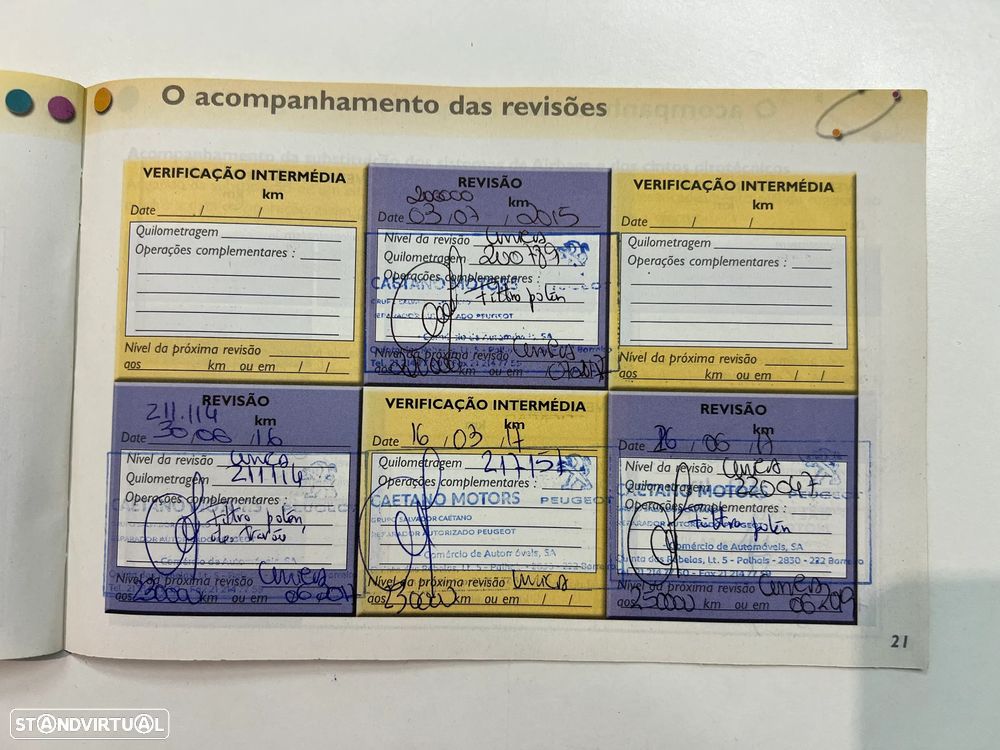 O acompanhamento das revisões
VERIFICAÇÃO INTERMÉDIA
km
Date / /
Quilometragem
Operações complementares :
Nível da próxima revisão
aos km ou em / /
REVISÃO
200000 km
Date 03 / 07 / 2015
Nível da revisão única
Quilometragem 200789
Operações complementares :
Filtro polén
CAETANO MOTORS PEUGEOT
GRUPO SALVADOR CAETANO
REPARADOR AUTORIZADO PEUGEOT
Comércio de Automóveis, SA
Nível da próxima revisão única
km ou em
VERIFICAÇÃO INTERMÉDIA
km
Date / /
Quilometragem
Operações complementares :
Nível da próxima revisão
aos km ou em / /
REVISÃO
211.114 km
Date 30 / 06 / 16
Nível da revisão única
Quilometragem 211114
Operações complementares :
Filtro polén
óleo travão
REPARADOR AUTORIZADO PEUGEOT
Comércio de Automóveis, SA
Nível da próxima revisão única
aos 230000 km ou em 06 2017
VERIFICAÇÃO INTERMÉDIA
km
Date 16 / 03 / 17
Quilometragem 217157
Operações complementares :
CAETANO MOTORS PEUGEOT
GRUPO SALVADOR CAETANO
REPARADOR AUTORIZADO PEUGEOT
Comércio de Automóveis, SA
Nível da próxima revisão única
aos 230000 km ou em / /
REVISÃO
km
Date 06
Nível da revisão única
Quilometragem 220047
Operações complementares :
Filtro polén
CAETANO MOTORS PEUGEOT
REPARADOR AUTORIZADO PEUGEOT
Comércio de Automóveis, SA
Quinta das Rebelas, Lt. 5 - Palhais - 2830 - 222 Barreiro
Nível da próxima revisão única
aos 250000 km ou em 06 2019
21
STANDVIRTUAL